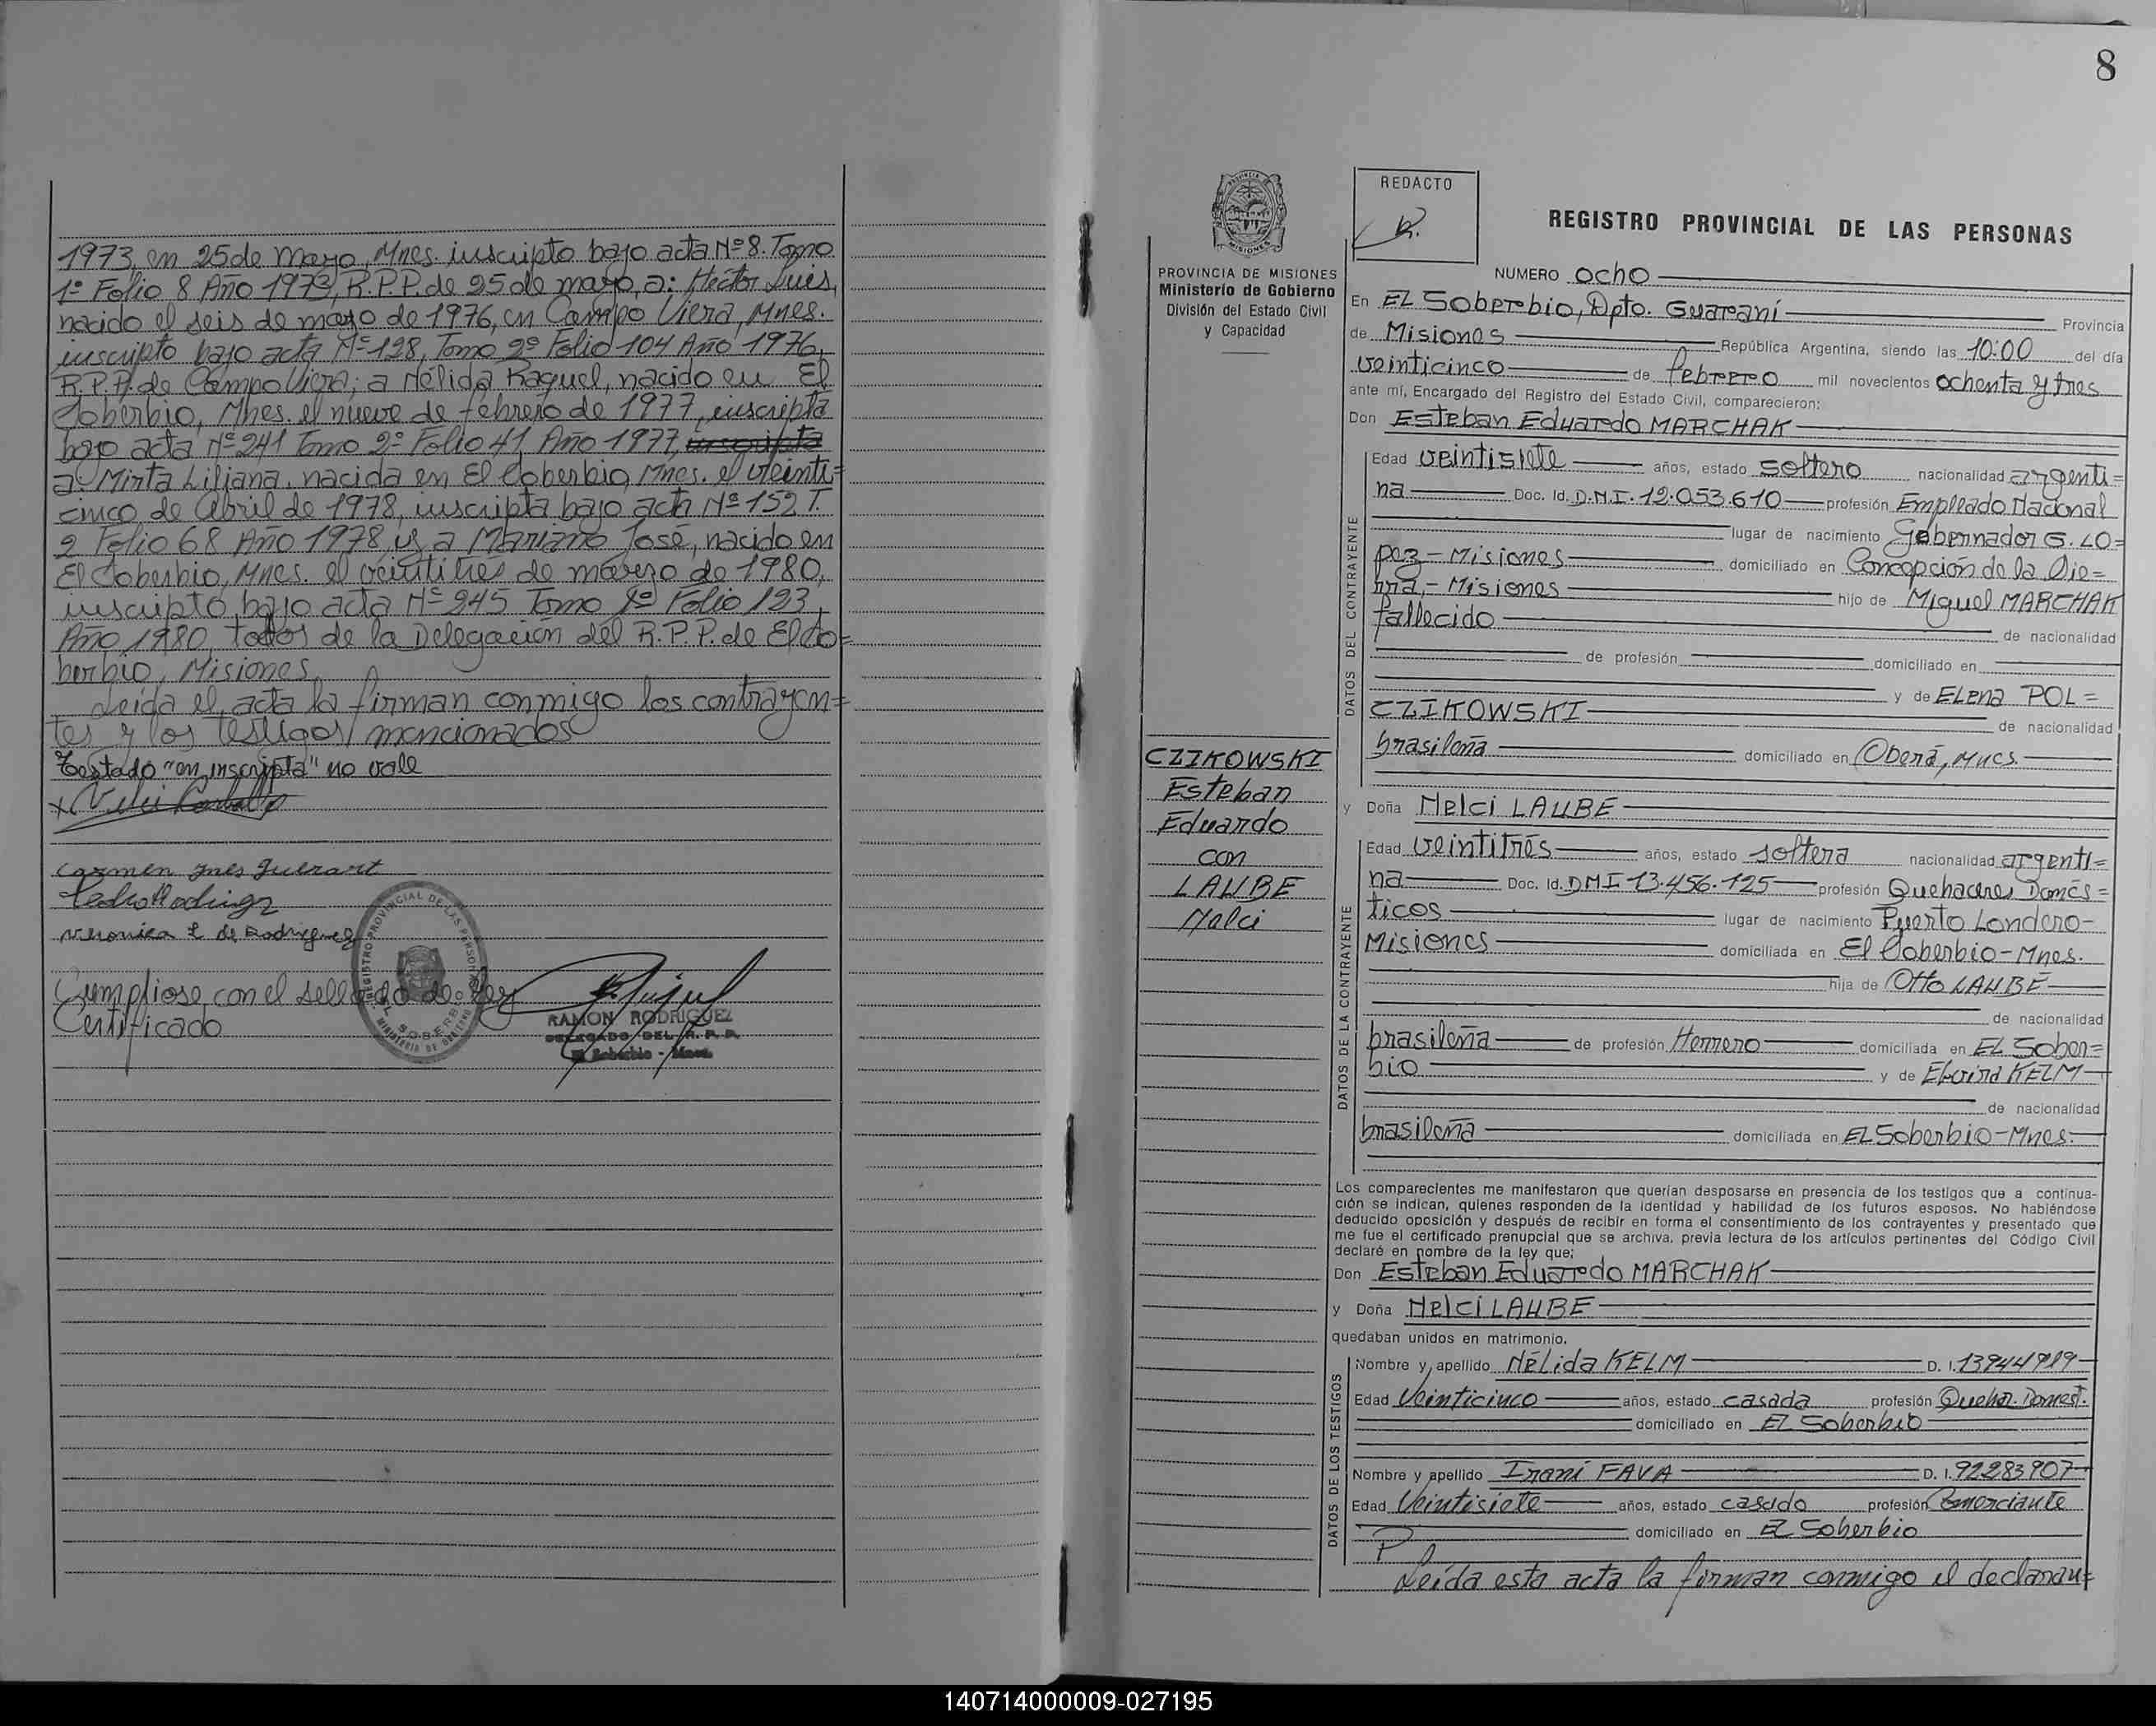 1973, en 25 de Mayo, Mnes. inscripto bajo acta Nº 8. Tomo
1º Folio 8 Año 1973, R.P.P. de 25 de mayo, a: Héctor Luis,
nacido el seis de mayo de 1976, en Campo Viera, Mnes.
inscripto bajo acta Nº 128, Tomo 2º Folio 104 Año 1976,
R.P.P. de Campo Viera; a Nélida Raquel, nacido en El
Soberbio, Mnes. el nueve de febrero de 1977, inscripta
bajo acta Nº 241 Tomo 2º Folio 41, Año 1977, inscripta
a: Mirta Liliana, nacida en El Soberbio, Mnes. el veinti=
cinco de Abril de 1978, inscripta bajo acta Nº 152 T.
2 Folio 68 Año 1978 y a Mariano José, nacido en
El Soberbio, Mnes. el veintitres de marzo de 1980,
inscripto bajo acta Nº 245 Tomo 2º Folio 123,
Año 1980, todos de la Delegación del R.P.P. de El So=
berbio, Misiones
Leída el acta la firman conmigo los contrayen=
tes y los testigos mencionados
Testado "en, inscripta" no vale
Carmen Ines
Pedro Rodriguez
Veronica E de Rodriguez
Cumpliose con el sellado de Ley
Certificado
REGISTRO PROVINCIAL DE LAS PERSONAS
EL SOBERBIO
MINISTERIO DE GOBIERNO
RAMON RODRIGUEZ
DELEGADO DEL R.P.P.
El Soberbio - Mnes.
8
PROVINCIA DE MISIONES
Ministerio de Gobierno
División del Estado Civil
y Capacidad
REDACTO
R.
REGISTRO PROVINCIAL DE LAS PERSONAS
NUMERO ocho
En EL Soberbio, Dpto. Guaraní Provincia
de Misiones República Argentina, siendo las 10:00 del día
veinticinco de febrero mil novecientos ochenta y tres
ante mí, Encargado del Registro del Estado Civil, comparecieron:
Don Esteban Eduardo MARCHAK
DATOS DEL CONTRAYENTE
Edad veintisiete años, estado soltero nacionalidad argenti=
na Doc. Id. D.N.I. 12.053.610 profesión Empleado Nacional
lugar de nacimiento Gobernador G. LO=
pez - Misiones domiciliado en Concepción de la Sie=
rra, - Misiones hijo de Miguel MARCHAK
fallecido de nacionalidad
de profesión domiciliado en
y de ELena POL=
CZIKOWSKI de nacionalidad
brasileña domiciliado en Oberá, Mnes.
CZIKOWSKI
Esteban
Eduardo
con
LAUBE
Nelci
y Doña Nelci LAUBE
DATOS DE LA CONTRAYENTE
Edad veintitrés años, estado soltera nacionalidad argenti=
na Doc. Id. DNI 13.456.125 profesión Quehaceres Domés=
ticos lugar de nacimiento Puerto Londero-
Misiones domiciliada en El Soberbio - Mnes.
hija de Otto LAUBE
de nacionalidad
brasileña de profesión Herrero domiciliada en EL Sober=
bio y de Elvira KELM
de nacionalidad
brasileña domiciliada en EL Soberbio - Mnes.
Los comparecientes me manifestaron que querían desposarse en presencia de los testigos que a continua-
ción se indican, quienes responden de la identidad y habilidad de los futuros esposos. No habiéndose
deducido oposición y después de recibir en forma el consentimiento de los contrayentes y presentado que
me fue el certificado prenupcial que se archiva, previa lectura de los artículos pertinentes del Código Civil
declaré en nombre de la ley que:
Don Esteban Eduardo MARCHAK
y Doña Nelci LAUBE
quedaban unidos en matrimonio.
DATOS DE LOS TESTIGOS
Nombre y apellido Nélida KELM D. I. 13944919
Edad Veinticinco años, estado casada profesión Quehac. Domest.
domiciliado en EL Soberbio
Nombre y apellido Iraní FAVA D. I. 92283907
Edad Veintisiete años, estado casado profesión Comerciante
domiciliado en EL Soberbio
Leída esta acta la firman conmigo el declaran=
140714000009-027195